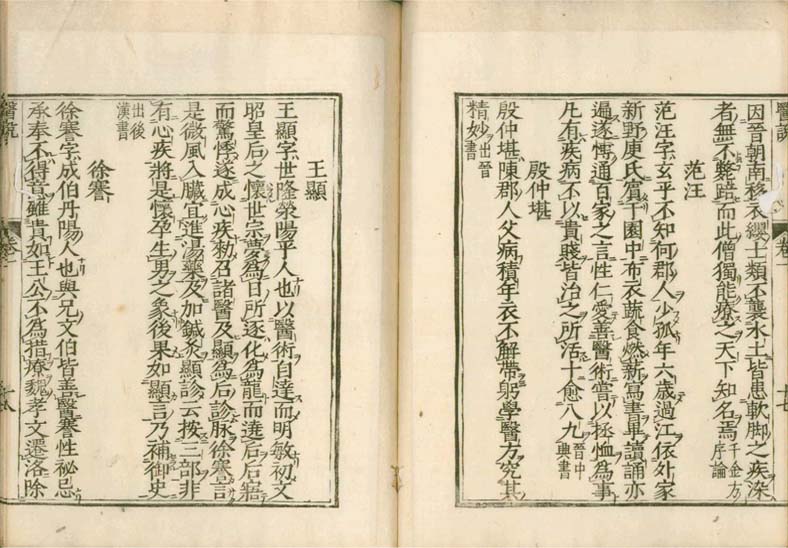 因晉朝南移衣纓士類不襲水土皆患軟脚之疾染
者無不斃踣而此僧獨能療之天下知名焉千金方序論
范汪
范汪字玄平不知何郡人少孤年六歲過江依外家
新野庾氏賓于園中布衣蔬食燃薪寫書畢讀誦亦
遍遂愽通百家之言性仁愛善醫術嘗以拯恤為事
凡有疾病不以貴賤皆治之所活十愈八九晉中典書
殷仲堪
殷仲堪陳郡人父病積年衣不解帶躬學醫方究其
精妙出晉書
王顯
王顯字世隆滎陽平人也以醫術自達而明敏初文
昭皇后之懷世宗夢為日所逐化為龍而遶后后寤
而驚悸遂成心疾勑召諸醫及顯為后診脉徐謇言
是微風入臟宜進湯藥及加鍼灸顯診云按三部非
有心疾將是懷孕生男之象後果如顯言乃補御史
出後漢書
徐謇
徐謇字成伯丹陽人也與兄文伯皆善醫謇性祕忌
承奉不得意雖貴如王公不為措療魏孝文遷洛除
醫說
卷一
十七
醫說
卷一
十八